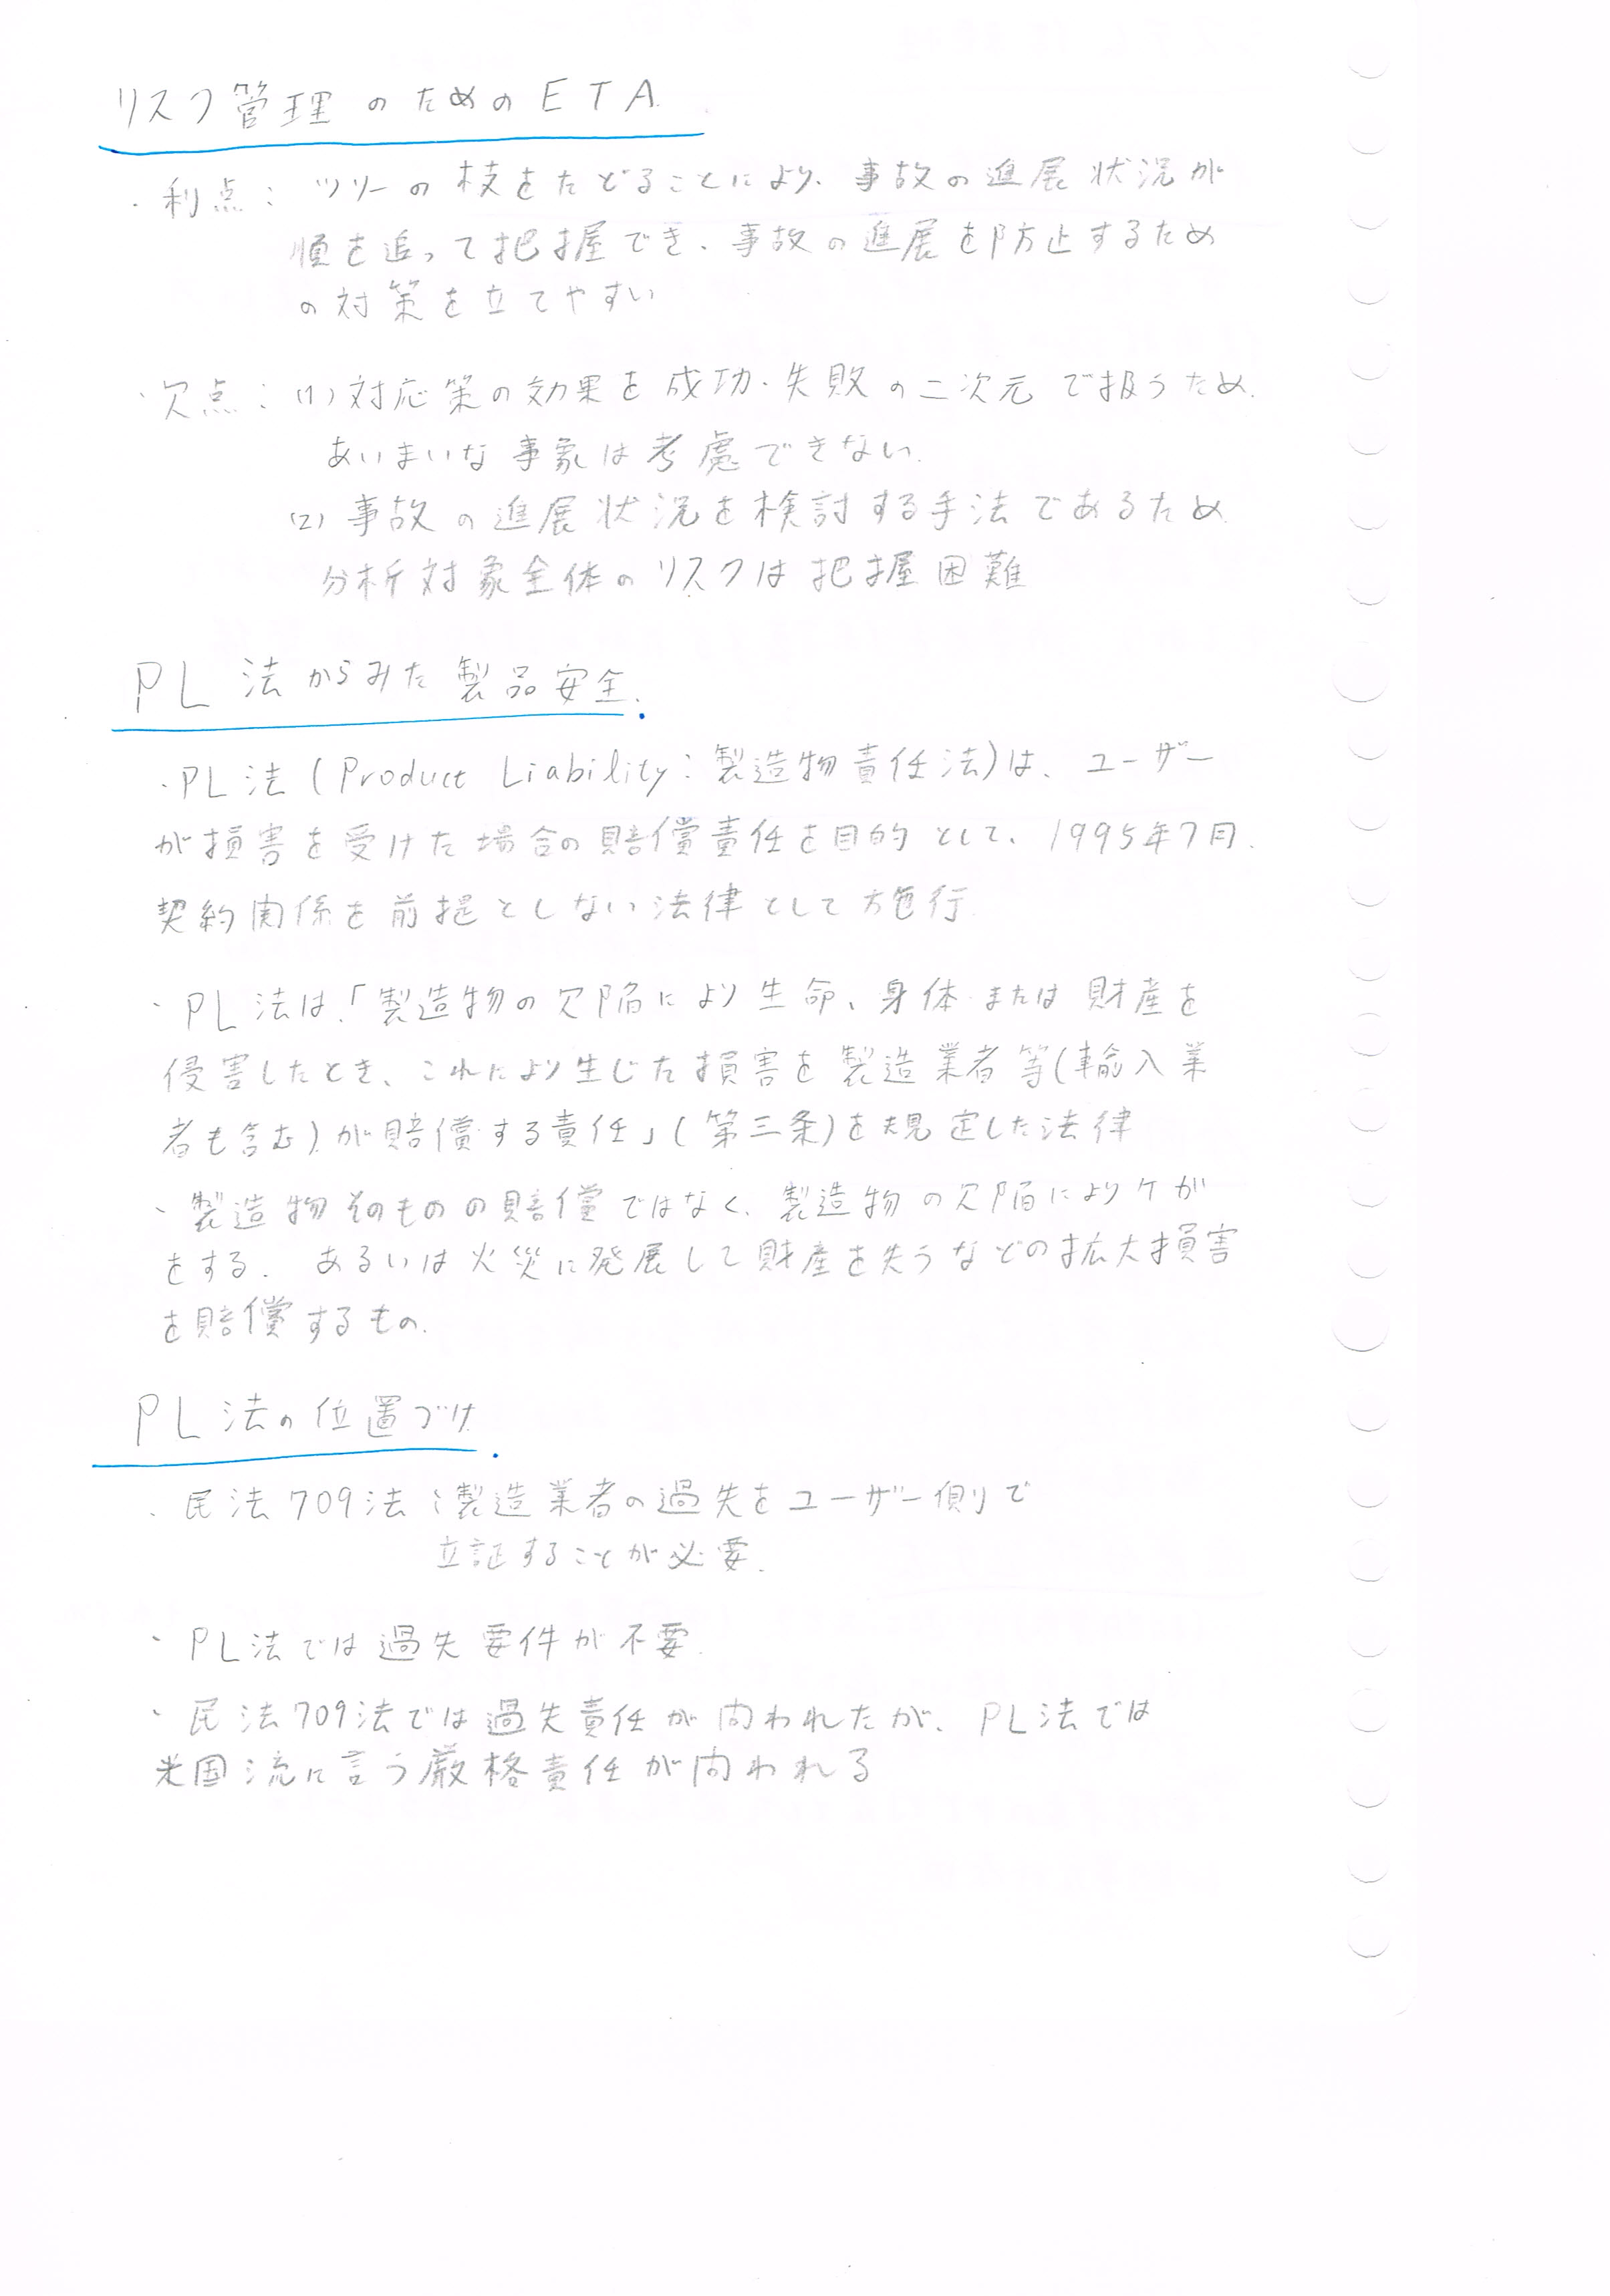 リスク管理のためのETA
・利点：ツリーの枝をたどることにより、事故の進展状況が
順を追って把握でき、事故の進展を防止するため
の対策を立てやすい
・欠点：(1)対応策の効果を成功・失敗の二次元で扱うため、
あいまいな事象は考慮できない。
(2)事故の進展状況を検討する手法であるため
分析対象全体のリスクは把握困難
PL法からみた製品安全.
・PL法(Product Liability:製造物責任法)は、ユーザー
が損害を受けた場合の賠償責任を目的として、1995年7月、
契約関係を前提としない法律として施行
・PL法は、「製造物の欠陥により生命、身体または財産を
侵害したとき、これにより生じた損害を製造業者等(輸入業
者も含む)が賠償する責任」(第三条)を規定した法律
・製造物そのものの賠償ではなく、製造物の欠陥によりケガ
をする、あるいは火災に発展して財産を失うなどの拡大損害
を賠償するもの。
PL法の位置づけ.
・民法709法：製造業者の過失をユーザー側で
立証することが必要.
・PL法では過失要件が不要.
・民法709法では過失責任が問われたが、PL法では
米国流に言う厳格責任が問われる